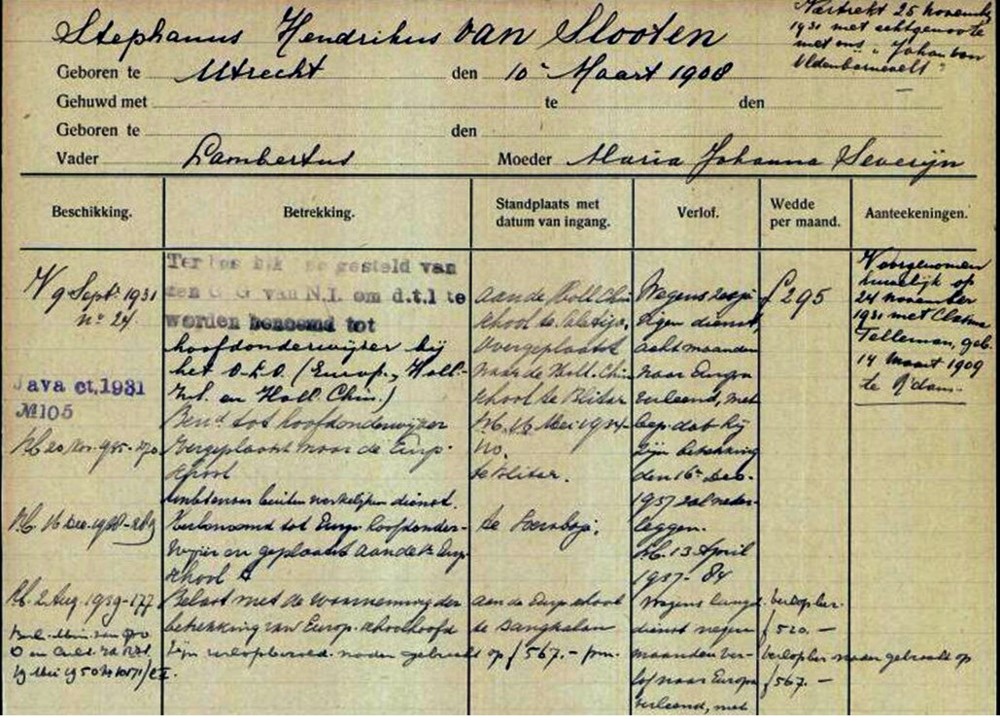 Stephanus Hendrikus van Slooten
Vertrekt 25 November
1931 met echtgenoote
met ms. "Johan van
Oldenbarnevelt"
Geboren te Utrecht den 10e Maart 1908
Gehuwd met te den
Geboren te den
Vader Lambertus Moeder Maria Johanna Severijn
Beschikking. Betrekking. Standplaats met datum van ingang. Verlof. Wedde per maand. Aanteekeningen.
N 9 Sept. 1931
no 24.
Java ct. 1931
No 105
20 Nov. 935-270
16 Dec. 1938-289
2 Aug. 1939-177
Ter beschikking gesteld van
den G.G. van N.I. om d.t.l te
worden benoemd tot
hoofdonderwijzer bij
het O.L.O. (Europ., Holl.-
Inl. en Holl. Chin.)
Ben.d tot hoofdonderwijzer
Overgeplaatst naar de Europ.
school
Ambtenaar buiten werkelijken dienst.
Herbenoemd tot Europ. hoofdonder-
wijzer en geplaatst aan de Europ.
school
Belast met de waarneming der
betrekking van Europ. schoolhoofd
Zijn verlofbezold. nader gebracht op f 567.- pm.
aan de Holl. Chin.
school te
Overgeplaatst
naar de Holl. Chin.
school te Blitar
16 Mei 1934
te Blitar.
te
aan de Europ. school
te Bangkalan
Wegens
eigen dienst,
acht maanden
naar Europa
verleend, met
bep. dat hij
zijn betrekking
den 16e Dec.
1937 zal neder-
leggen.
13 April
1937- 84
Wegens langd.
dienst negen
maanden ver-
lof naar Europa
verleend, met
f 295
verlofbez.
f 520.-
verlofbez nader gebracht op
f 567.-
Voorgenomen
huwelijk op
24 November
1931 met
Telleman, geb.
14 Maart 1909
te R'dam.